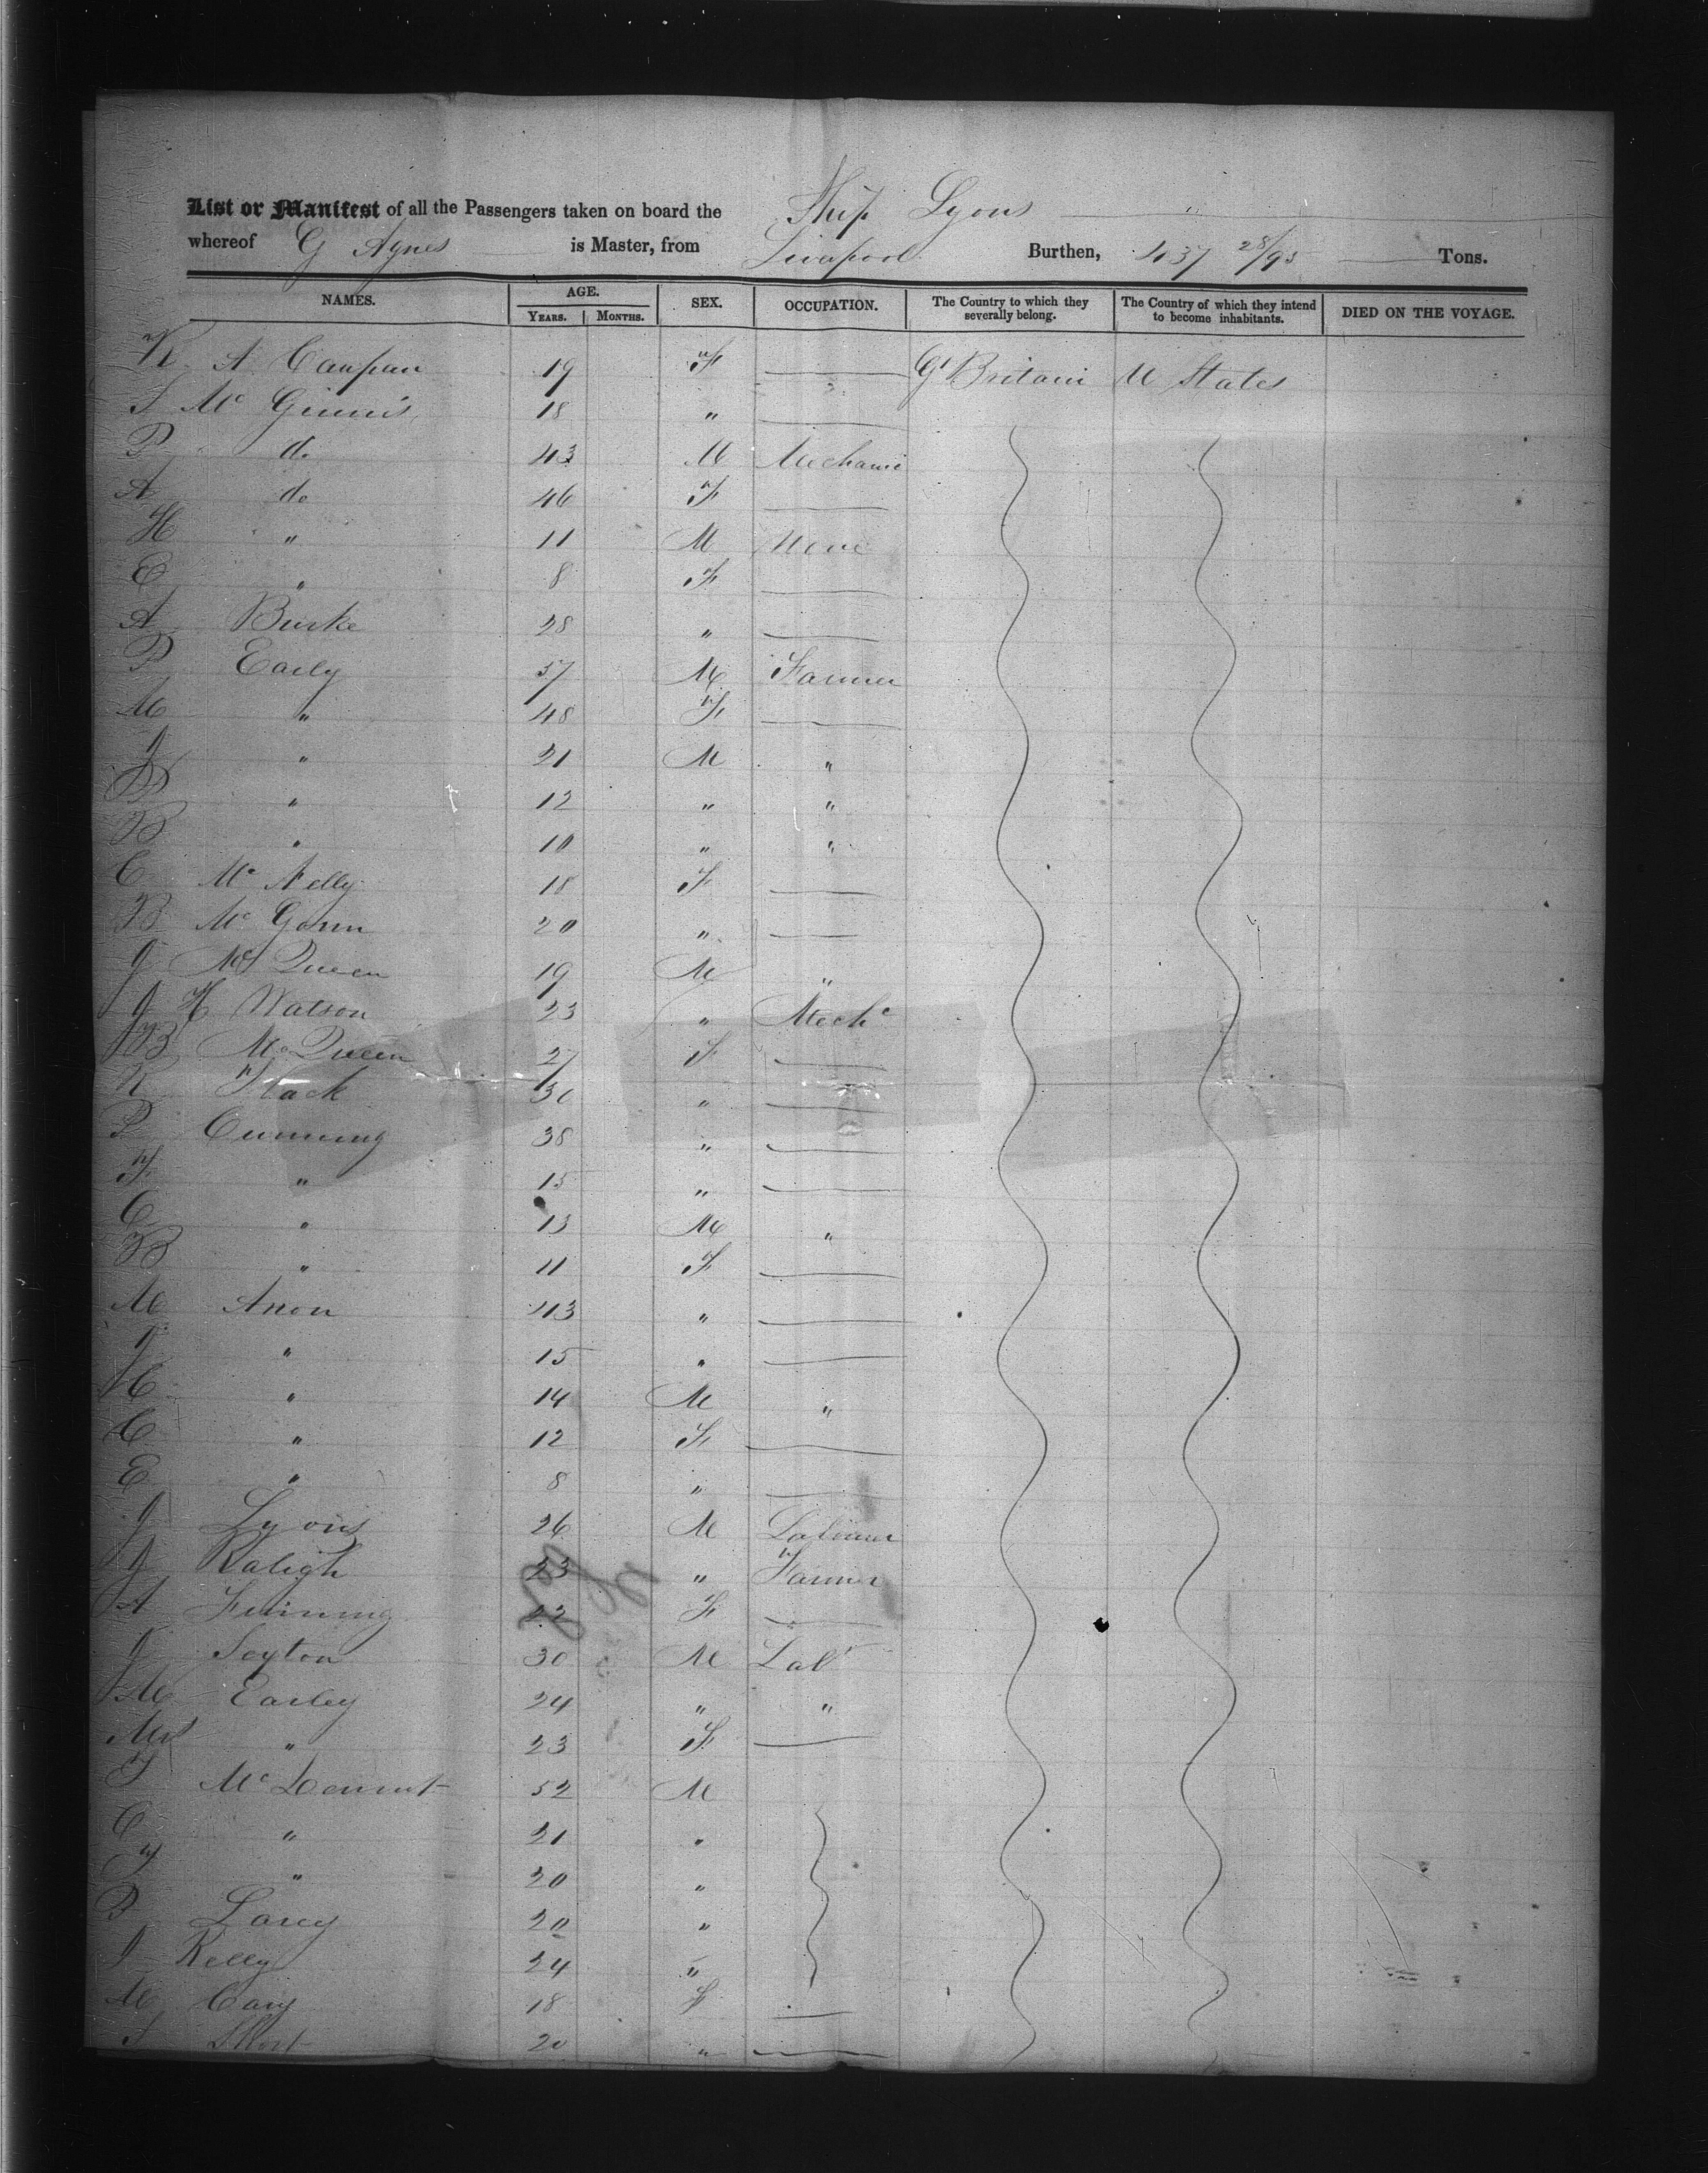 List or Manifest of all the Passengers taken on board the Ship Lyons "
whereof G Agnes is Master, from Liverpool Burthen, 437 28/95 Tons.
NAMES. AGE. SEX. OCCUPATION. The Country to which they severally belong. The Country of which they intend to become inhabitants. DIED ON THE VOYAGE.
YEARS. MONTHS.
K A 19 F Gt Britain U States
S Mc Ginnis 18 "
P do 43 M Mechanic
A do 46 F
H " 11 M None
E " 8 F
A Burke 28 "
P Early 57 M Farmer
M " 48 F
J " 21 M "
" 12 " "
B " 10 " "
C Mc Nelly 18 F
B Mc Gown 20 "
J Mc Queen 19 M "
J H Watson 23 " Mechc
B Mc Queen 27 F
K Flack 30 "
P Cumming 38 "
F " 15 "
C " 13 M "
B " 11 F
M Anon 43 "
J " 15 "
H " 14 M "
C " 12 F
E " 8 "
J Lyons 26 M Labourer
J Raleigh 23 " Farmer
A 22 F
J Seyton 30 M Labr
M Earley 24 " "
Mrs " 23 F
T Mc Dermot 52 M
C " 21 "
T " 20 "
B Larey 20 "
J Kelly 24 "
M Cary 18 F
S Short 20 "